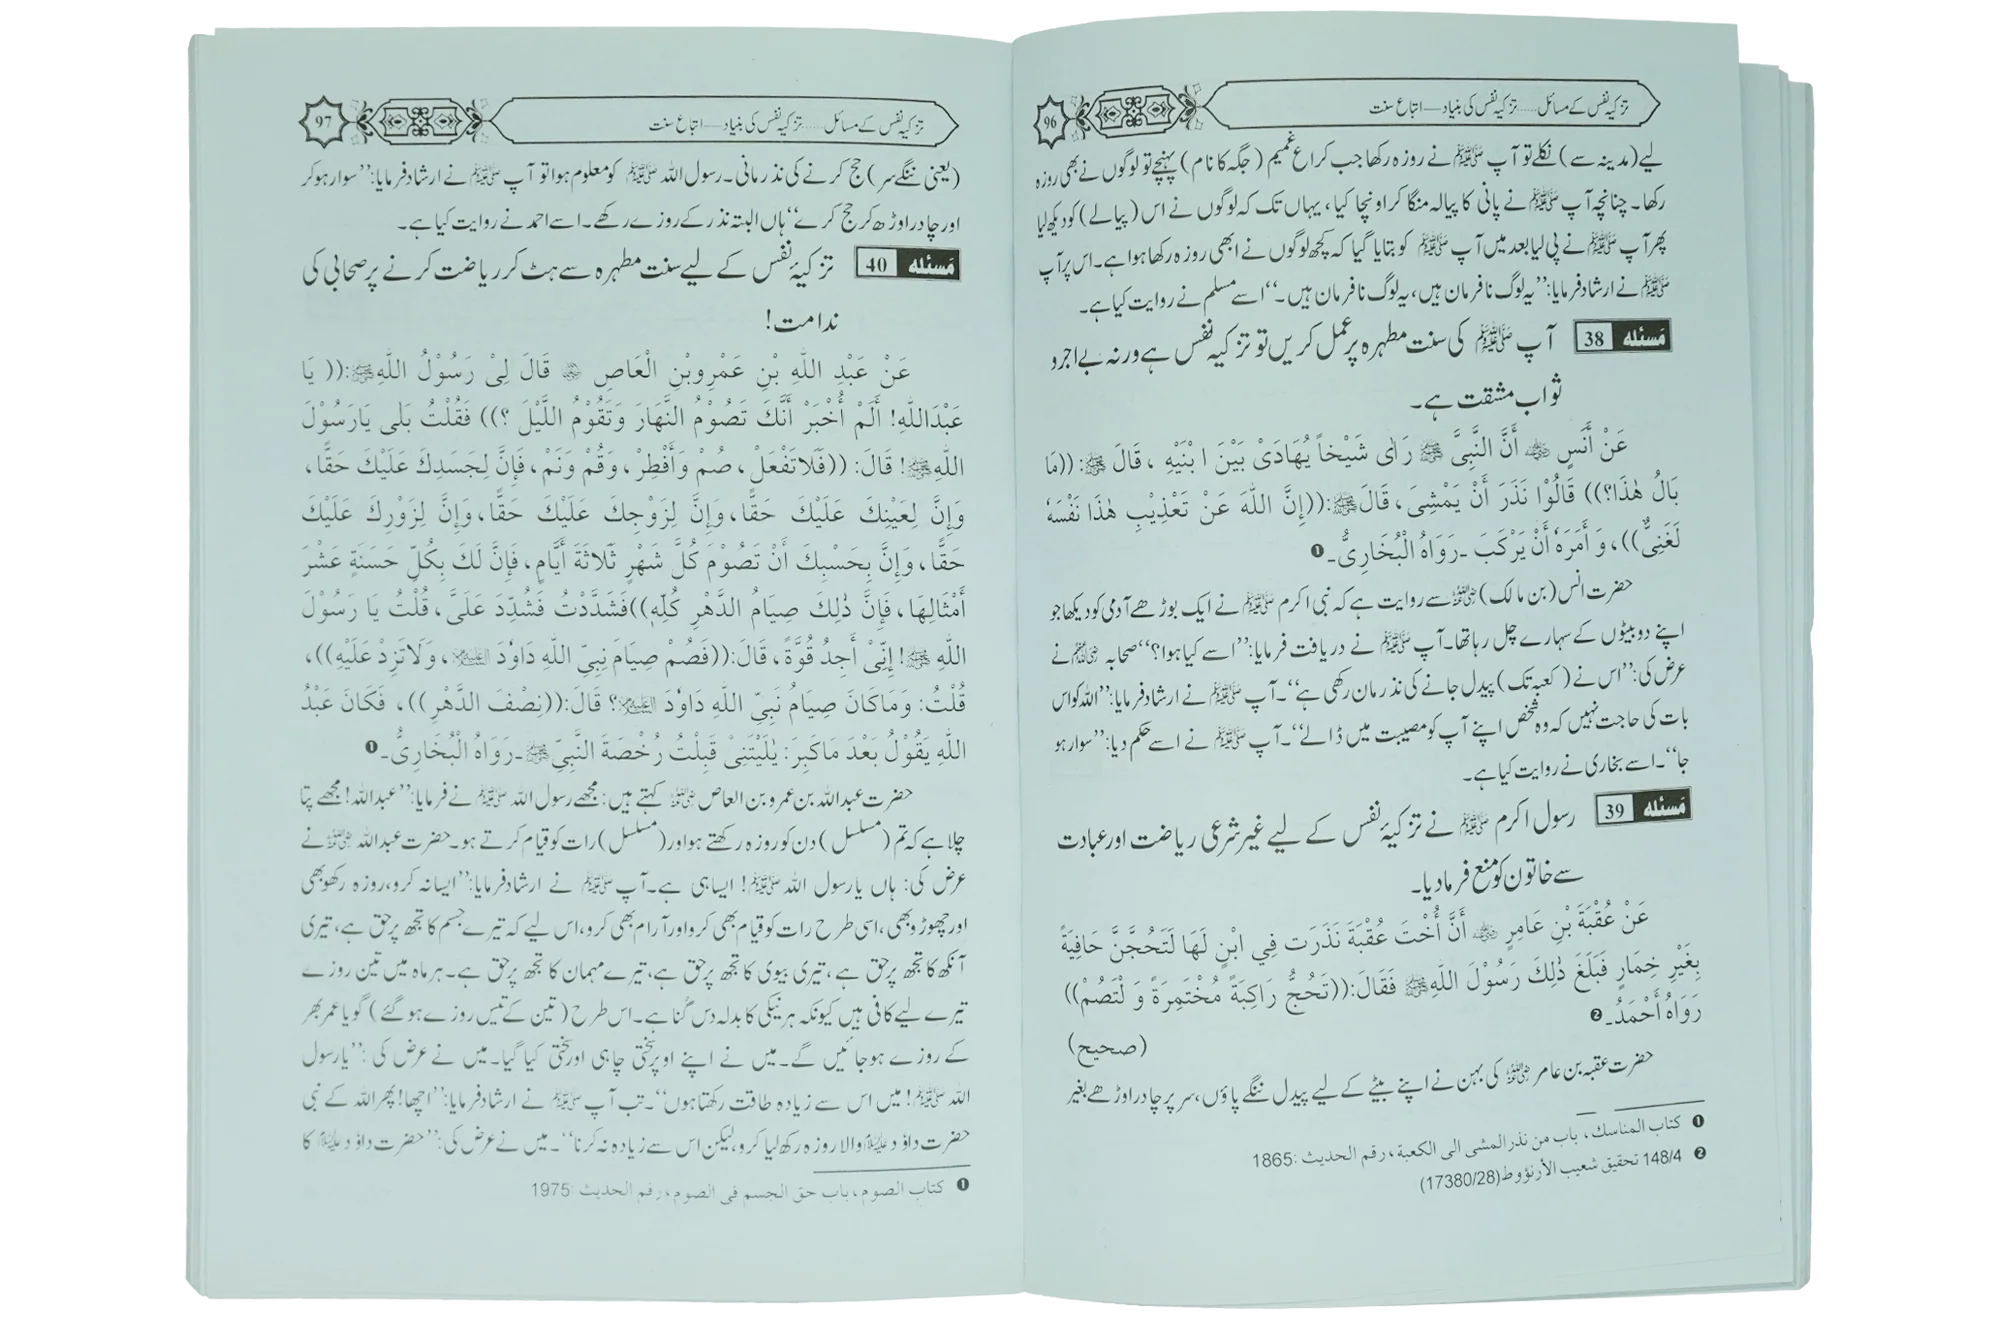 تزکیہ نفس کے مسائل.....تزکیہ نفس کی بنیاد—اتباع سنت
96
لیے (مدینہ سے) نکلے تو آپ ﷺ نے روزہ رکھا جب کراع غمیم (جگہ کا نام) پہنچے تو لوگوں نے بھی روزہ
رکھا۔ چنانچہ آپ ﷺ نے پانی کا پیالہ منگا کر اونچا کیا، یہاں تک کہ لوگوں نے اس (پیالے) کو دیکھ لیا
پھر آپ ﷺ نے پی لیا بعد میں آپ ﷺ کو بتایا گیا کہ کچھ لوگوں نے ابھی روزہ رکھا ہوا ہے۔ اس پر آپ
ﷺ نے ارشاد فرمایا: ’’یہ لوگ نافرمان ہیں، یہ لوگ نافرمان ہیں۔‘‘ اسے مسلم نے روایت کیا ہے۔
مَسئلہ 38 آپ ﷺ کی سنت مطہرہ پر عمل کریں تو تزکیہ نفس ہے ورنہ بے اجر و
ثواب مشقت ہے۔
عَنْ أَنَسٍ ﷛ أَنَّ النَّبِیَّ ﷺ رَاٰی شَیْخاً یُهَادَیْ بَیْنَ ابْنَیْهِ ، قَالَ ﷺ: ((مَا
بَالُ هٰذَا؟)) قَالُوْا نَذَرَ أَنْ یَمْشِیَ، قَالَ ﷺ: ((إِنَّ اللّٰهَ عَنْ تَعْذِیْبِ هٰذَا نَفْسَهٗ
لَغَنِیٌّ))، وَ أَمَرَهٗ أَنْ یَرْكَبَ ۔ رَوَاهُ الْبُخَارِیُّ۔ ❶
حضرت انس (بن مالک) رضی اللہ عنہ سے روایت ہے کہ نبی اکرم ﷺ نے ایک بوڑھے آدمی کو دیکھا جو
اپنے دو بیٹوں کے سہارے چل رہا تھا۔ آپ ﷺ نے دریافت فرمایا: ’’اسے کیا ہوا؟‘‘ صحابہ رضی اللہ عنہم نے
عرض کی: ’’اس نے (کعبہ تک) پیدل جانے کی نذر مان رکھی ہے‘‘۔ آپ ﷺ نے ارشاد فرمایا: ’’اللہ کو اس
بات کی حاجت نہیں کہ وہ شخص اپنے آپ کو مصیبت میں ڈالے‘‘۔ آپ ﷺ نے اسے حکم دیا: ’’سوار ہو
جا‘‘۔ اسے بخاری نے روایت کیا ہے۔
مَسئلہ 39 رسول اکرم ﷺ نے تزکیۂ نفس کے لیے غیر شرعی ریاضت اور عبادت
سے خاتون کو منع فرما دیا۔
عَنْ عُقْبَةَ بْنِ عَامِرٍ ﷛ أَنَّ أُخْتَ عُقْبَةَ نَذَرَت فِي ابْنٍ لَهَا لَتَحُجَّنَّ حَافِیَةً
بِغَیْرِ خِمَارٍ فَبَلَغَ ذٰلِكَ رَسُوْلَ اللّٰهِ ﷺ فَقَالَ: ((تَحُجُّ رَاكِبَةً مُخْتَمِرَةً وَ لْتَصُمْ))
رَوَاهُ أَحْمَدُ۔ ❷
(صحیح)
حضرت عقبہ بن عامر رضی اللہ عنہ کی بہن نے اپنے بیٹے کے لیے پیدل ننگے پاؤں، سر پر چادر اوڑھے بغیر
❶ کتاب المناسك، باب من نذر المشی الی الکعبة، رقم الحدیث: 1865
❷ 148/4 تحقیق شعیب الأرنؤوط (17380/28)
تزکیہ نفس کے مسائل.....تزکیہ نفس کی بنیاد—اتباع سنت
97
(یعنی ننگے سر) حج کرنے کی نذر مانی۔ رسول اللہ ﷺ کو معلوم ہوا تو آپ ﷺ نے ارشاد فرمایا: ’’سوار ہو کر
اور چادر اوڑھ کر حج کرے‘‘ ہاں البتہ نذر کے روزے رکھے۔ اسے احمد نے روایت کیا ہے۔
مَسئلہ 40 تزکیۂ نفس کے لیے سنت مطہرہ سے ہٹ کر ریاضت کرنے پر صحابی کی
ندامت!
عَنْ عَبْدِ اللّٰهِ بْنِ عَمْرِوبْنِ الْعَاصِ ﷛ قَالَ لِیْ رَسُوْلُ اللّٰهِ ﷺ: (( یَا
عَبْدَاللّٰهِ! أَلَمْ أُخْبَرْ أَنَّكَ تَصُوْمُ النَّهَارَ وَتَقُوْمُ اللَّیْلَ ؟)) فَقُلْتُ بَلٰی یَارَسُوْلَ
اللّٰهِ ﷺ! قَالَ: ((فَلَاتَفْعَلْ، صُمْ وَأَفْطِرْ، وَقُمْ وَنَمْ، فَإِنَّ لِجَسَدِكَ عَلَیْكَ حَقًّا،
وَإِنَّ لِعَیْنِكَ عَلَیْكَ حَقًّا، وَإِنَّ لِزَوْجِكَ عَلَیْكَ حَقًّا، وَإِنَّ لِزَوْرِكَ عَلَیْكَ
حَقًّا، وَإِنَّ بِحَسْبِكَ أَنْ تَصُوْمَ كُلَّ شَهْرٍ ثَلَاثَةَ أَیَّامٍ، فَإِنَّ لَكَ بِكُلِّ حَسَنَةٍ عَشْرَ
أَمْثَالِهَا، فَإِنَّ ذٰلِكَ صِیَامُ الدَّهْرِ كُلِّهٖ)) فَشَدَّدْتُ فَشُدِّدَ عَلَیَّ، قُلْتُ یَا رَسُوْلَ
اللّٰهِ ﷺ! إِنِّیْ أَجِدُ قُوَّةً، قَالَ: ((فَصُمْ صِیَامَ نَبِیِّ اللّٰهِ دَاوُدَ علیہ السلام، وَلَاتَزِدْ عَلَیْهِ))،
قُلْتُ: وَمَاكَانَ صِیَامُ نَبِیِّ اللّٰهِ دَاوُدَ علیہ السلام؟ قَالَ: ((نِصْفَ الدَّهْرِ))، فَكَانَ عَبْدُ
اللّٰهِ یَقُوْلُ بَعْدَ مَاكَبِرَ: یٰلَیْتَنِیْ قَبِلْتُ رُخْصَةَ النَّبِیِّ ﷺ۔ رَوَاهُ الْبُخَارِیُّ۔ ❶
حضرت عبداللہ بن عمرو بن العاص رضی اللہ عنہ کہتے ہیں: مجھے رسول اللہ ﷺ نے فرمایا: ’’عبداللہ! مجھے پتا
چلا ہے کہ تم (مسلسل) دن کو روزہ رکھتے ہو اور (مسلسل) رات کو قیام کرتے ہو۔ حضرت عبداللہ رضی اللہ عنہ نے
عرض کی: ہاں یا رسول اللہ ﷺ! ایسا ہی ہے۔ آپ ﷺ نے ارشاد فرمایا: ’’ایسا نہ کرو، روزہ رکھو بھی
اور چھوڑو بھی، اسی طرح رات کو قیام بھی کرو اور آرام بھی کرو، اس لیے کہ تیرے جسم کا تجھ پر حق ہے، تیری
آنکھ کا تجھ پر حق ہے، تیری بیوی کا تجھ پر حق ہے، تیرے مہمان کا تجھ پر حق ہے۔ ہر ماہ میں تین روزے
تیرے لیے کافی ہیں کیونکہ ہر نیکی کا بدلہ دس گنا ہے۔ اس طرح (تین کے تیس روزے ہو گئے) گویا عمر بھر
کے روزے ہو جائیں گے۔ میں نے اپنے اوپر سختی چاہی اور سختی کیا گیا۔ میں نے عرض کی: ’’یا رسول
اللہ ﷺ! میں اس سے زیادہ طاقت رکھتا ہوں‘‘۔ تب آپ ﷺ نے ارشاد فرمایا: ’’اچھا! پھر اللہ کے نبی
حضرت داؤد علیہ السلام والا روزہ رکھ لیا کرو، لیکن اس سے زیادہ نہ کرنا‘‘۔ میں نے عرض کی: ’’حضرت داؤد علیہ السلام کا
❶ کتاب الصوم، باب حق الجسم فی الصوم، رقم الحدیث: 1975